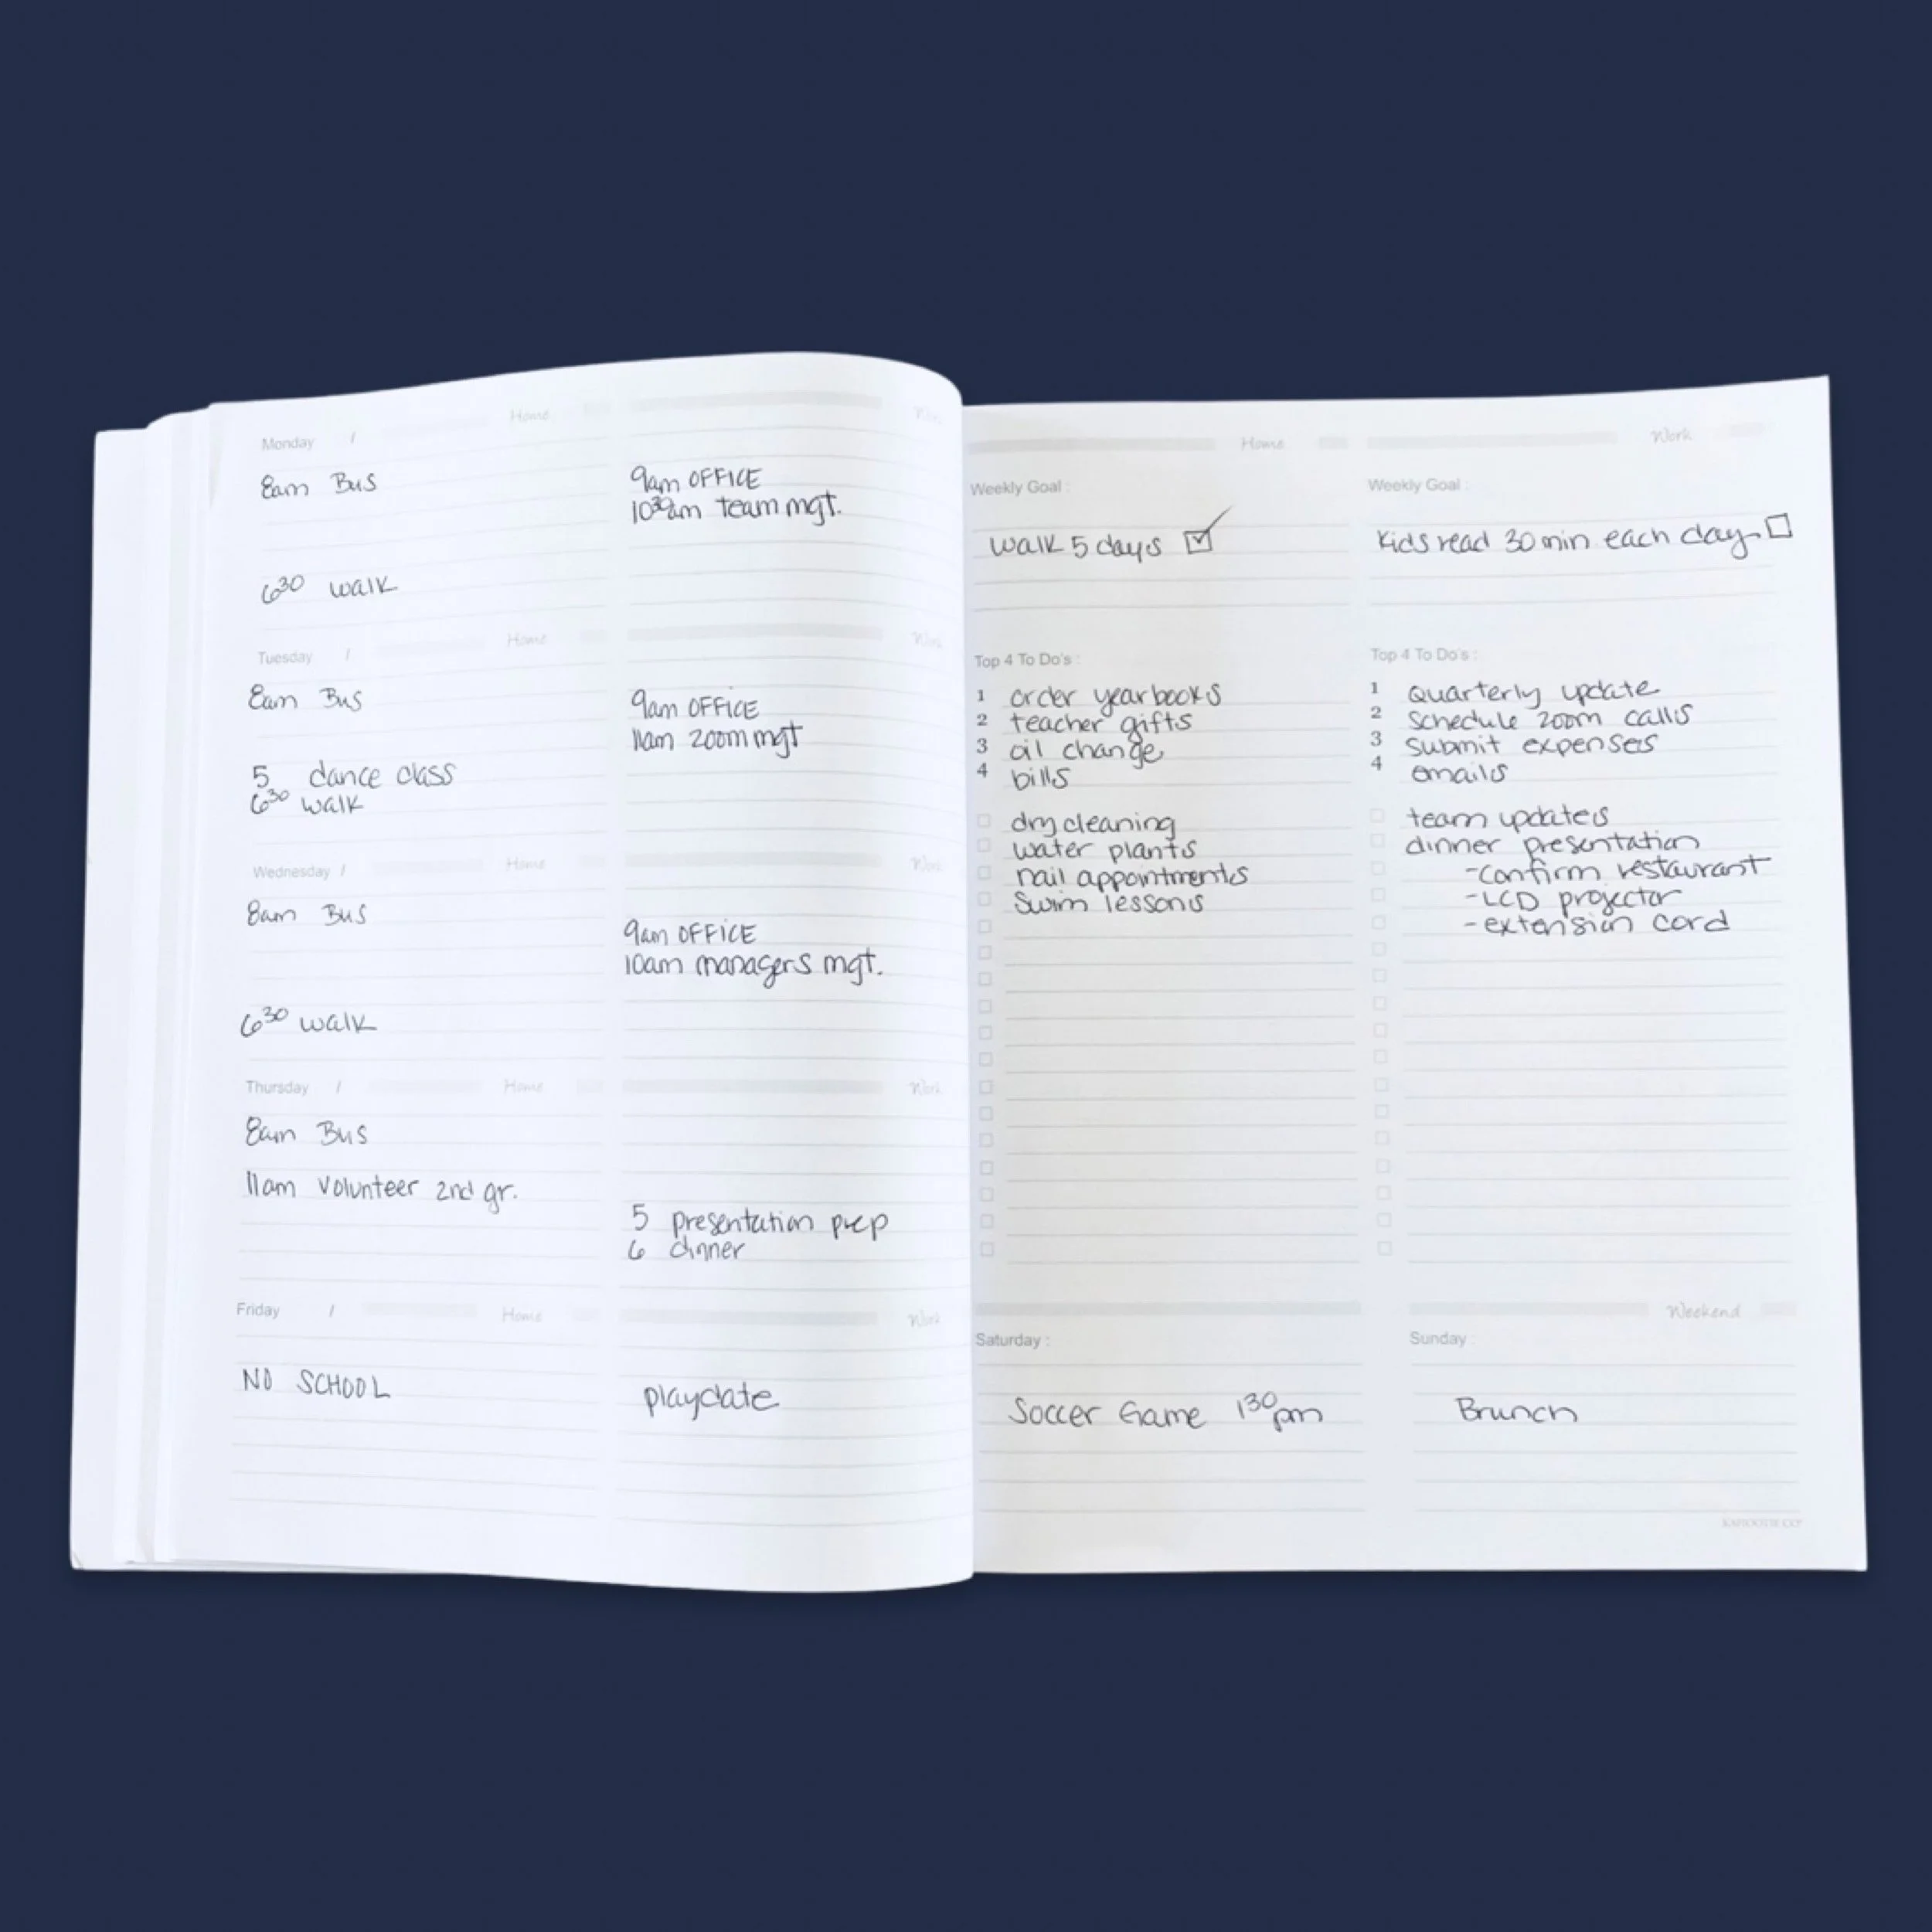 Home
Work
Monday /
8am Bus
9am OFFICE
10³⁰am team mgt.
6³⁰ walk
Home
Work
Tuesday /
8am Bus
9am OFFICE
11am zoom mgt
5 dance class
6³⁰ walk
Home
Work
Wednesday /
8am Bus
9am OFFICE
10am managers mgt.
6³⁰ walk
Thursday / Home
Work
8am Bus
11am Volunteer 2nd gr.
5 presentation prep
6 dinner
Friday / Home
Work
NO SCHOOL
playdate
Home
Weekly Goal :
walk 5 days ☑
Top 4 To Do's :
1 order yearbooks
2 teacher gifts
3 oil change
4 bills
dry cleaning
water plants
nail appointments
swim lessons
Work
Weekly Goal :
Kids read 30 min each day ☐
Top 4 To Do's :
1 Quarterly update
2 Schedule zoom calls
3 submit expenses
4 emails
team updates
dinner presentation
-confirm restaurant
-LCD projector
-extension cord
Weekend
Saturday :
Soccer Game 1³⁰pm
Sunday :
Brunch